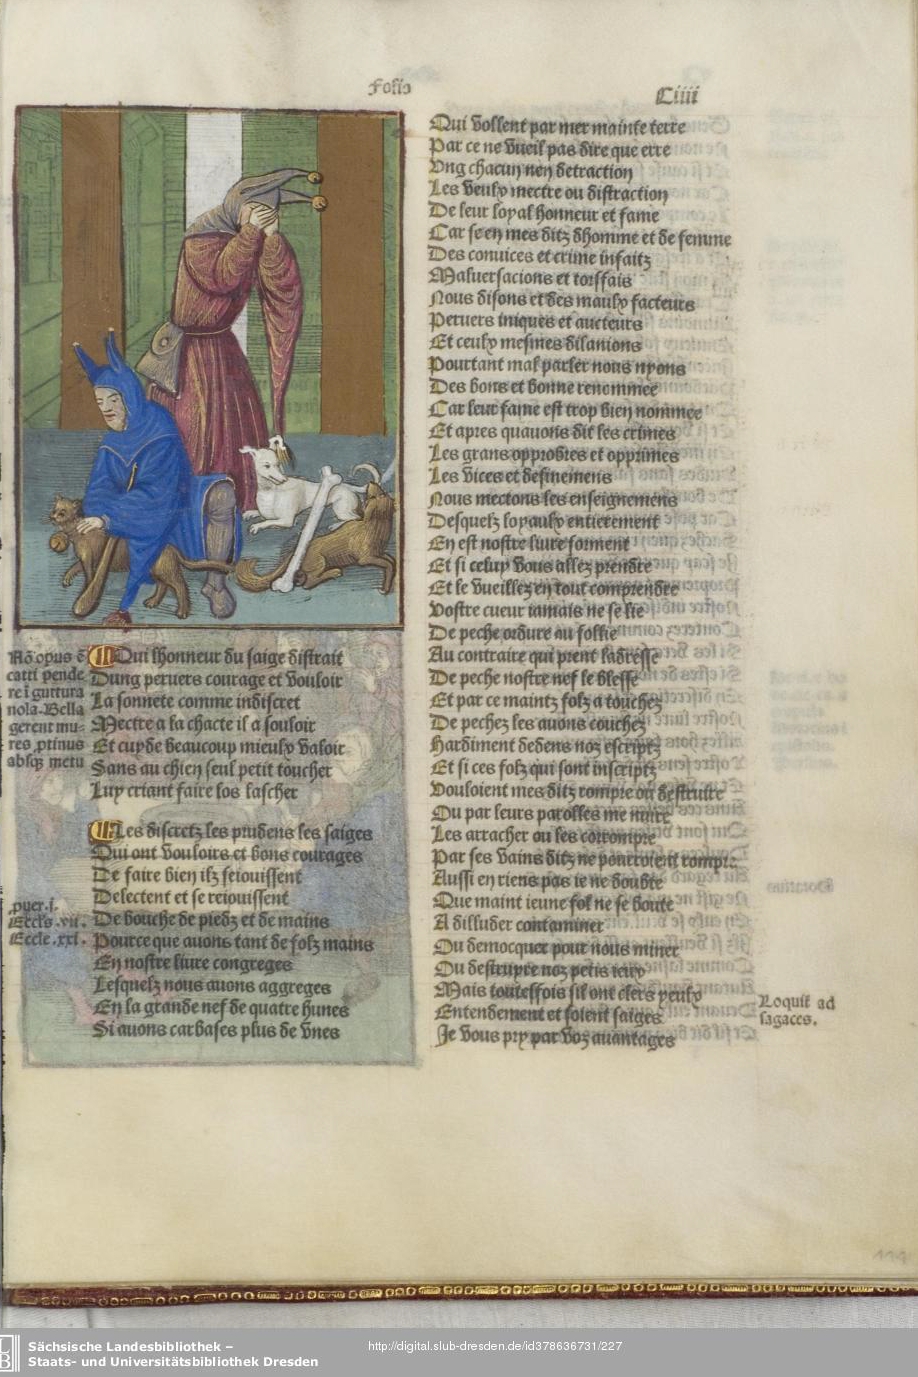 Folio
Ciiii
Nō opus ē
catti pende
re ī guttura
nola. Bella
gerent mu-
res ꝓtinus
absqꝫ metu
Qui lhonneur du saige distrait
Dung peruers courage et vouloir
La sonnete comme indiscret
Mectre a la chacte il a souloir
Et cuyde beaucoup mieulx valoir
Sans au chien seul petit toucher
Luy criant faire los lascher
Les discretz les prudens les saiges
Qui ont vouloirs et bons courages
De faire bien ilz seiouissent
Delectent et se reiouissent
De bouche de piedz et de mains
Pource que auons tant de folz mains
En nostre liure congreges
Lesquelz nous auons aggreges
En la grande nef de quatre hunes
Si auons carbases plus de vnes
ꝓuer. i.
Eccls. vii.
Eccle. xxi.
Qui vollent par mer mainte terre
Par ce ne vueil pas dire que erre
Vng chacun nen detraction
Les veulx mectre ou distraction
De leur loyal honneur et fame
Car se en mes ditz dhomme et de femme
Des conuices et crime infaitz
Maluersacions et torffais
Nous disons et des maulx facteurs
Peruers iniques et aucteurs
Et ceulx mesmes dilanions
Pourtant mal parler nous nyons
Des bons et bonne renommee
Car leur fame est trop bien nommee
Et apres quauons dit les crimes
Les grans opprobres et opprimes
Les vices et definemens
Nous mectons les enseignemens
Desquelz loyaulx entierement
En est nostre liure forment
Et si celuy vous allez prendre
Et le vueillez en tout comprendre
Vostre cueur iamais ne se lie
De peche ordure au follie
Au contraire qui prent ladresse
De peche nostre nef le blesse
Et par ce maintz folz a touchez
De pechez les auons couchez
Hardiment dedens noz escriptz
Et si ces folz qui sont inscriptz
Vouloient mes ditz rompre ou destruire
Ou par leurs parolles me nuire
Les arracher ou les corrompre
Par ses vains ditz ne pourroient rompre
Aussi en riens pas ie ne doubte
Que maint ieune fol ne se boute
A dilluder contaminer
Ou democquer pour nous miner
Ou destruyre noz petis ieux
Mais toutesfois sil ont clers yeulx
Entendement et soient saiges
Je vous pry par voz auantages
Loquit̄ ad
sagaces.
119
Sächsische Landesbibliothek –
Staats- und Universitätsbibliothek Dresden
http://digital.slub-dresden.de/id378636731/227